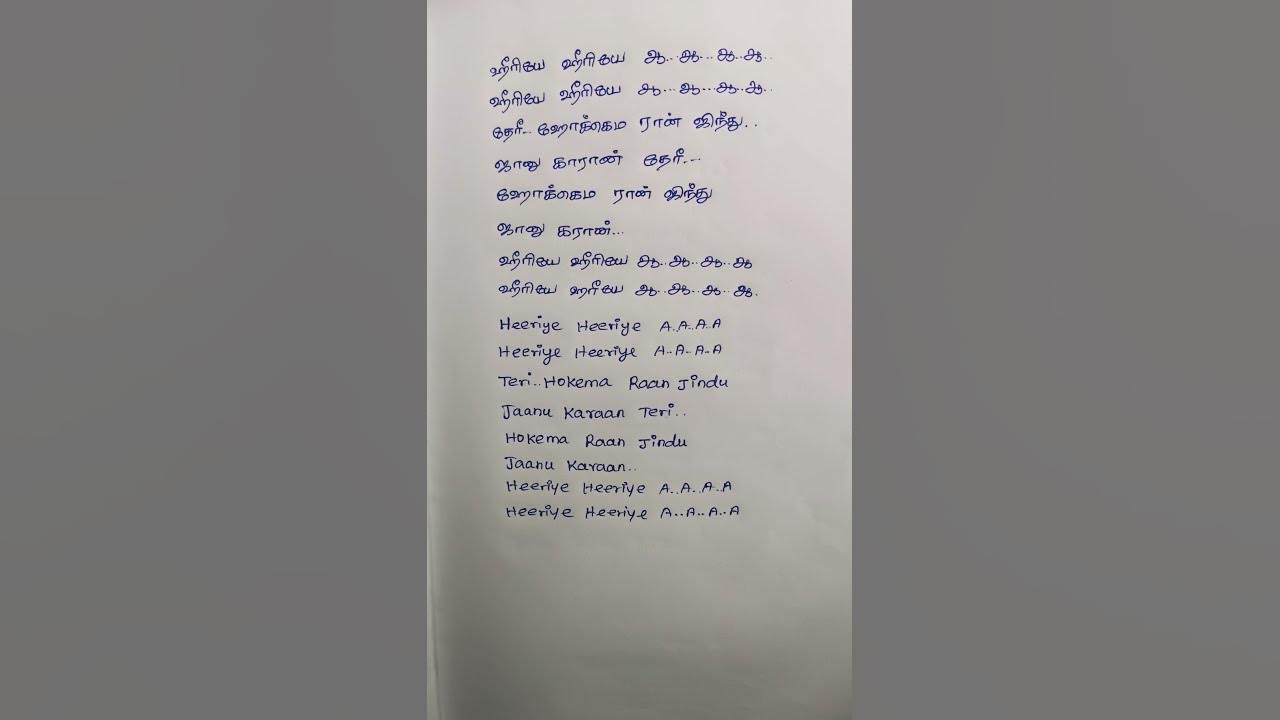 ஹீரியே ஹீரியே ஆ..ஆ...ஆ..ஆ..
ஹீரியே ஹீரியே ஆ...ஆ...ஆ..ஆ..
தேரீ..ஹோக்கெம ரான் ஜிந்து..
ஜானு காரான் தேரீ...
ஹோக்கெம ரான் ஜிந்து
ஜானு கரான்...
ஹீரியே ஹீரியே ஆ..ஆ..ஆ..ஆ
ஹீரியே ஹரீயே ஆ..ஆ..ஆ..ஆ.
Heeriye Heeriye A..A..A..A
Heeriye Heeriye A..A..A..A
Teri..Hokema Raan Jindu
Jaanu Karaan Teri..
Hokema Raan Jindu
Jaanu Karaan..
Heeriye Heeriye A..A..A..A
Heeriye Heeriye A..A..A..A